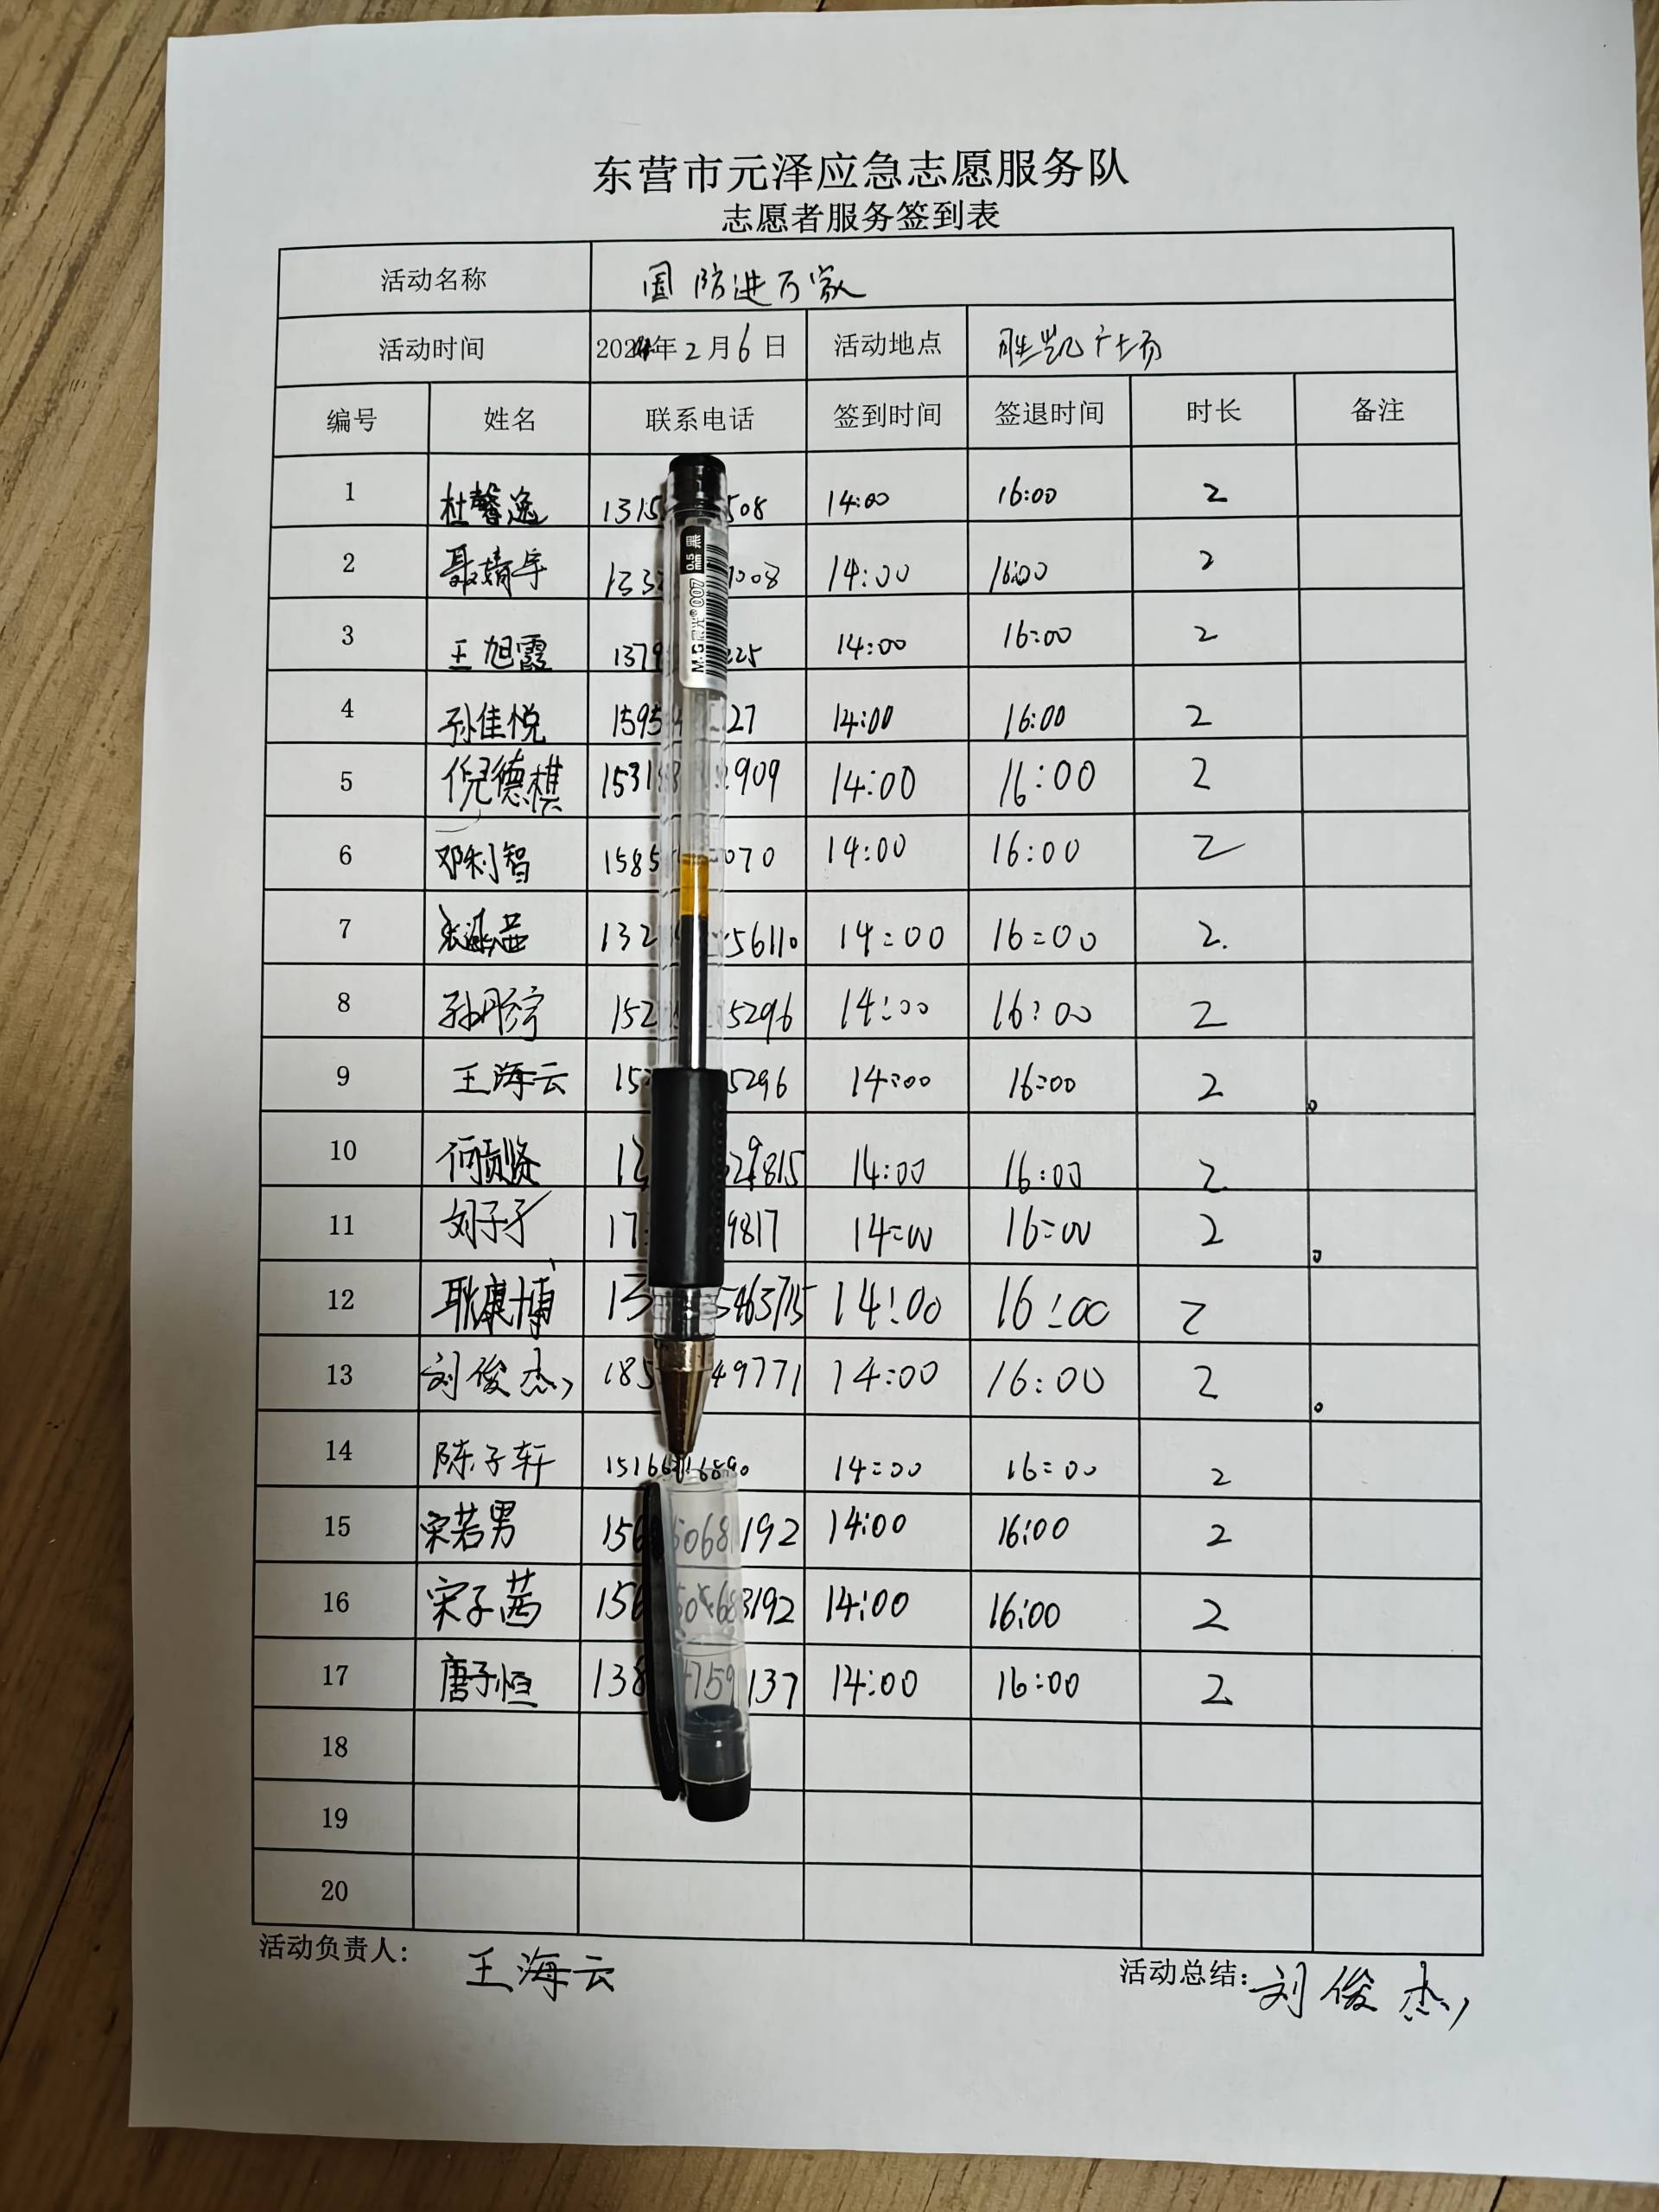 东营市元泽应急志愿服务队
志愿者服务签到表
活动名称 国防进万家
活动时间 2024年2月6日 活动地点 胜凯广场
编号 姓名 联系电话 签到时间 签退时间 时长 备注
1 杜馨逸 1315 508 14:00 16:00 2
2 聂婧宇 133 1008 14:00 16:00 2
3 王旭霞 1379 225 14:00 16:00 2
4 孙佳悦 1595 27 14:00 16:00 2
5 倪德棋 1531 909 14:00 16:00 2
6 邓利智 1585 070 14:00 16:00 2
7 132 56110 14:00 16:00 2.
8 152 5296 14:00 16:00 2
9 王海云 15 5296 14:00 16:00 2
10 何贡贤 29815 14:00 16:00 2
11 刘子矛 17 9817 14:00 16:00 2
12 耿康博 13 14:00 16:00 2
13 刘俊杰 185 49771 14:00 16:00 2
14 陈子轩 15166 14:00 16:00 2
15 宋若男 156 5068 192 14:00 16:00 2
16 宋子茜 156 3192 14:00 16:00 2
17 唐子恒 138 759 137 14:00 16:00 2
18
19
20
活动负责人: 王海云 活动总结: 刘俊杰
M&G 晨光 007 0.5 黑